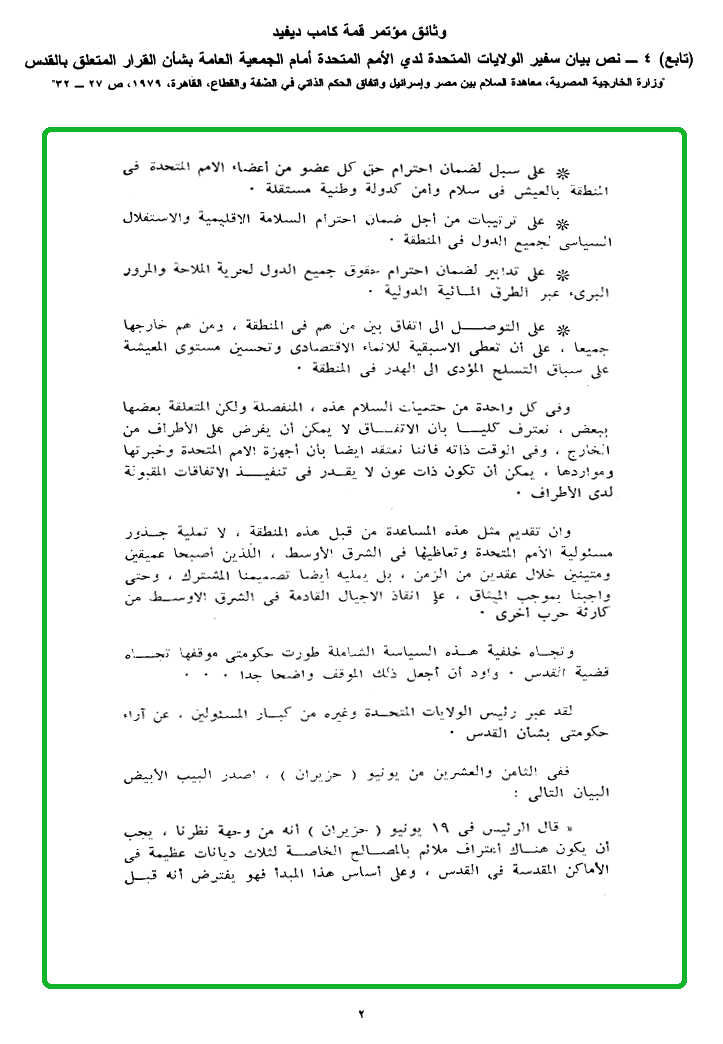 وثائق مؤتمر قمة كامب ديفيد
(تابع) ٤ ــ نص بيان سفير الولايات المتحدة لدي الأمم المتحدة أمام الجمعية العامة بشأن القرار المتعلق بالقدس
"وزارة الخارجية المصرية، معاهدة السلام بين مصر وإسرائيل واتفاق الحكم الذاتي في الضفة والقطاع، القاهرة، ١٩٧٩، ص ٢٧ ــ ٣٢"
※ على سبل لضمان احترام حق كل عضو من أعضاء الامم المتحدة فى
المنطقة بالعيش فى سلام وأمن كدولة وطنية مستقلة ٠
※ على ترتيبات من أجل ضمان احترام السلامة الاقليمية والاستقلال
السياسى لجميع الدول فى المنطقة ٠
※ على تدابير لضمان احترام حقوق جميع الدول لحرية الملاحة والمرور
البرىء عبر الطرق المــائية الدولية ٠
※ على التوصــــل الى اتفاق بين من هم فى المنطقة ، ومن هم خارجها
جميعا ، على أن تعطى الاسبقية للانماء الاقتصادى وتحسين مستوى المعيشة
على سباق التسلح المؤدى الى الهدر فى المنطقة ٠
وفى كل واحدة من حتميات السلام هذه ، المنفصلة ولكن المتعلقة بعضها
ببعض ، نعترف كليــا بأن الاتفــاق لا يمكن أن يفرض على الأطراف من
الخارج ، وفى الوقت ذاته فاننا نعتقد ايضا بأن أجهزة الامم المتحدة وخبرتها
ومواردها ، يمكن أن تكون ذات عون لا يقــدر فى تنفيــذ الاتفاقات المقبولة
لدى الأطراف ٠
وان تقديم مثل هذه المساعدة من قبل هذه المنطقة ، لا تملية جــذور
مسئولية الأمم المتحدة وتعاظيها فى الشرق الأوسط ، اللذين أصبحا عميقين
ومتينين خلال عقدين من الزمن ، بل يمليه أيضا تصميمنا المشترك ، وحتى
واجبنا بموجب الميثاق ، على انقاذ الاجيال القادمة فى الشرق الاوســط من
كارثة حرب أخرى ٠
وتجــاه خلفية هــذه السياسة الشاملة طورت حكومتى موقفها تجــاه
قضية القدس ٠ واود أن أجعل ذلك الموقف واضحا جدا ٠ ٠ ٠
لقد عبر رئيس الولايات المتحــدة وغيره من كبــار المسئولين ، عن آراء
حكومتى بشأن القدس ٠
ففى الثامن والعشرين من يونيو ( حزيران ) ، اصدر البيب الأبيض
البيان التالى :
« قال الرئيس فى ١٩ يونيو ( حزيران ) أنه من وجهة نظرنا ، يجب
أن يكون هنــاك أعتراف ملائم بالمصالح الخاصــة لثلاث ديانات عظيمة فى
الأماكن المقدسة فى القدس ، وعلى أساس هذا المبدأ فهو يفترض أنه قبــل
٢